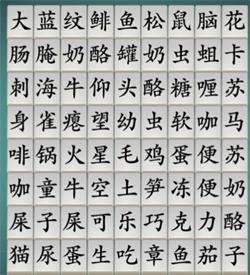 大蓝纹鲱鱼松鼠脑花
肠腌奶酪罐蚁虫蛆卡
刺海牛仰头酪糖喱苏
身雀瘪望幼虫软咖马
啡锅火星毛鸡蛋便苏
咖童牛空土笋冻便奶
屎子屎可乐巧克力酪
猫尿蛋生吃章鱼茄子